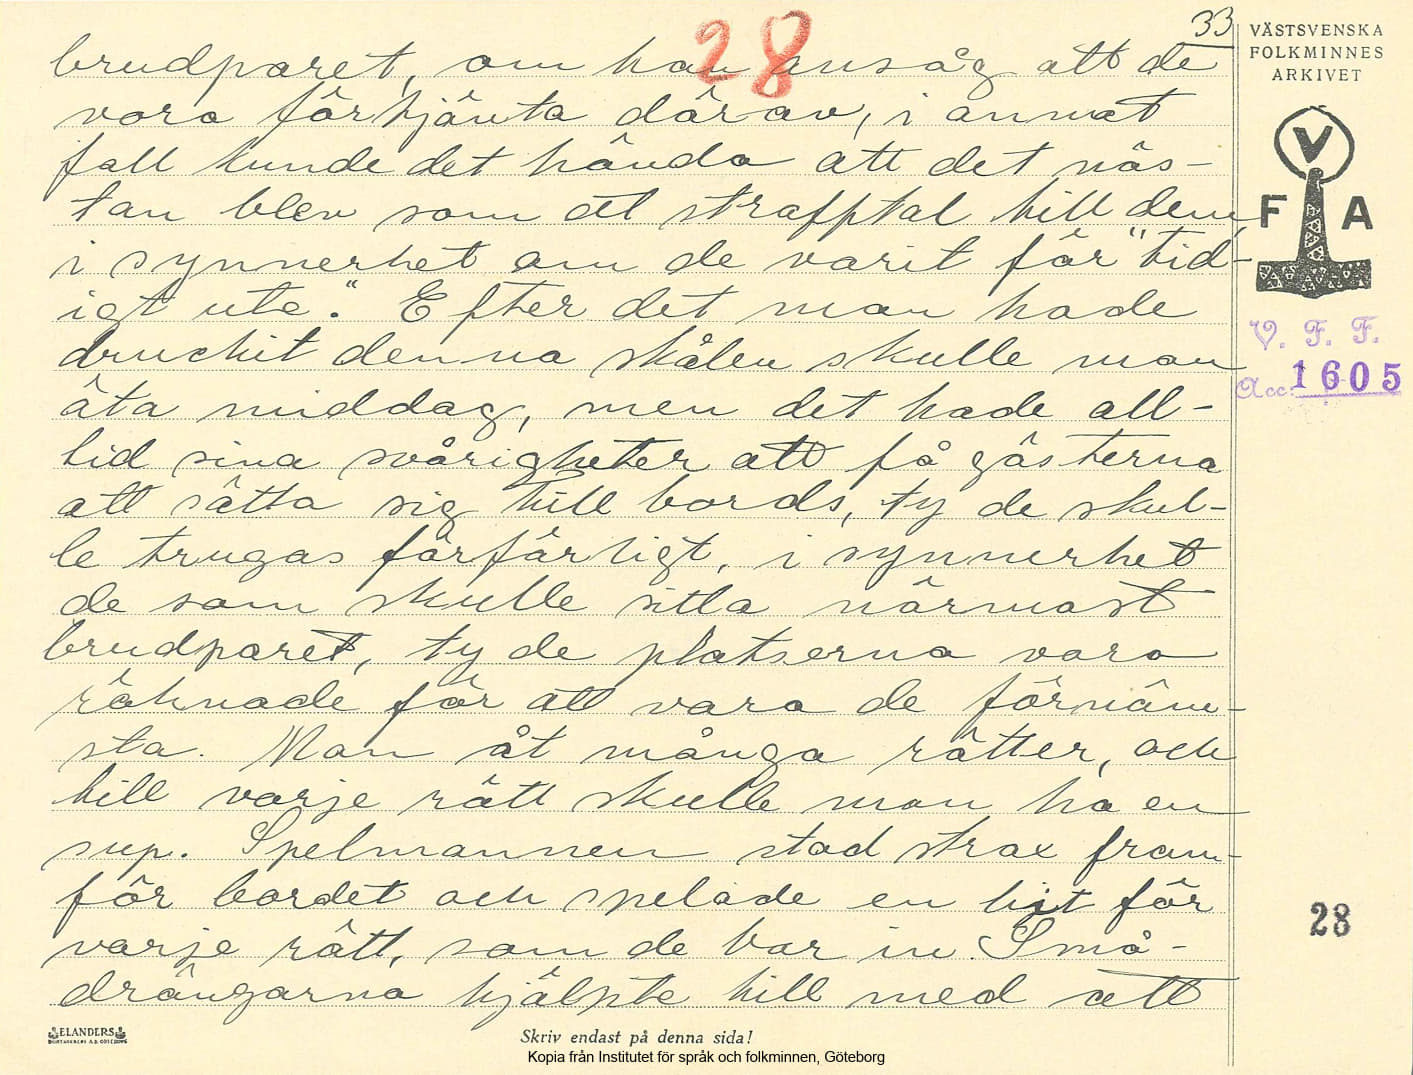 28
33
brudparet, om han ansåg att de
vora förtjänta därav, i annat
fall kunde det hända att det näs-
tan blev som ett strafftal till dem,
i synnerhet om de varit för "tid-
igt ute." Efter det man hade
druckit denna skålen skulle man
äta middag, men det hade all-
tid sina svårigheter att få gästerna
att sätta sig till bords, ty de skul-
le trugas förfärligt, i synnerhet
de som skulle sitta närmast
brudparet, ty de platserna vara
räknade för att vara de förnäm-
sta. Man åt många rätter, och
till varje rätt skulle man ha en
sup. Spelmannen stod strax fram-
för bordet och spelade en bit för
varje rätt, som de bar in. Små-
drängarna hjälpte till med att
VÄSTSVENSKA
FOLKMINNES
ARKIVET
V
F A
V. F. F.
Acc. 1605
28
ELANDERS
Skriv endast på denna sida!
Kopia från Institutet för språk och folkminnen, Göteborg